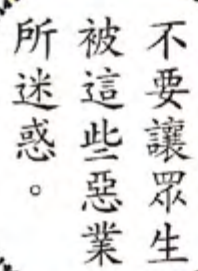 不要讓眾生
被這些惡業
所迷惑。